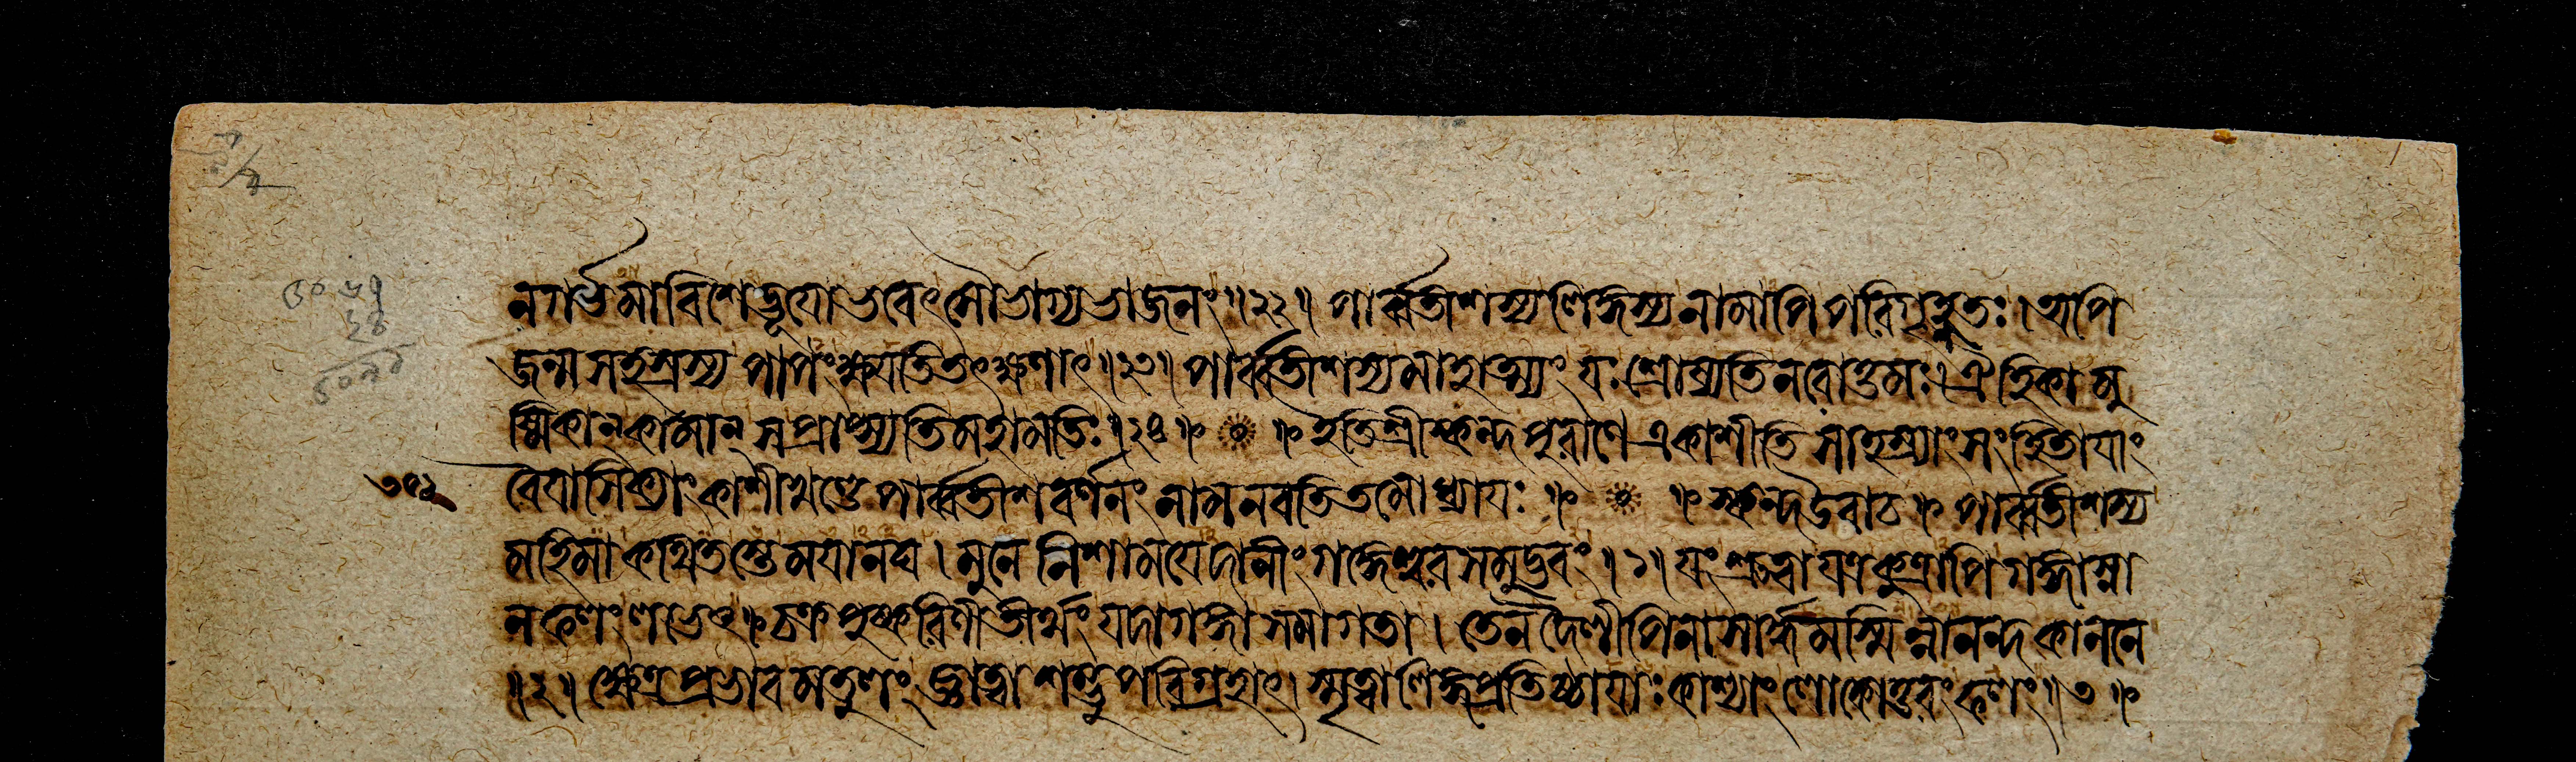 নগর্ভমাবিশেদ্ভূযোভবেৎসৌভাগ্যভাজনং॥২২॥ পার্ব্বতীশস্যলিঙ্গস্যনামাপিপরিগৃহ্ণতঃ।অপি
জন্মসহস্রস্য পাপংক্ষযতিতৎক্ষণাৎ॥২৩॥ পার্ব্বতীশস্যমাহাত্ম্যং যঃ শ্রোষ্যতিনরোত্তমঃ। ঐহিকামু
ষ্মিকান্কামান্ সপ্রাপ্স্যতিমহামতিঃ॥২৪॥ ইতিশ্রীস্কন্দপুরাণে একাশীতি সাহস্র্যাংসংহিতাযাং
বৈযাসিক্যাং কাশীখণ্ডে পার্ব্বতীশবর্ণনং নামনবতিতমোধ্যাযঃ॥ ॥স্কন্দউবাচ॥ পার্ব্বতীশস্য
মহিমা কথিতস্তেমযানঘ। মুনে নিশামযেদানীংগঙ্গেশ্বরসমুদ্ভবং॥১॥ যংশ্রুত্বা যত্রকুত্রাপি গঙ্গাস্না
নফলংলভেৎ॥চক্রপুষ্করিণীতীর্থং যদাগঙ্গা সমাগতা। তেন দৈলীপিনাসার্দ্ধমস্মিন্নানন্দকাননে
॥২॥ ক্ষেত্রপ্রভাবমতুলং জ্ঞাত্বা শম্ভুপরিগ্রহাৎ। স্মৃত্বালিঙ্গপ্রতিষ্ঠাযাঃ কাশ্যাংলোকোত্তরংফলং॥৩॥